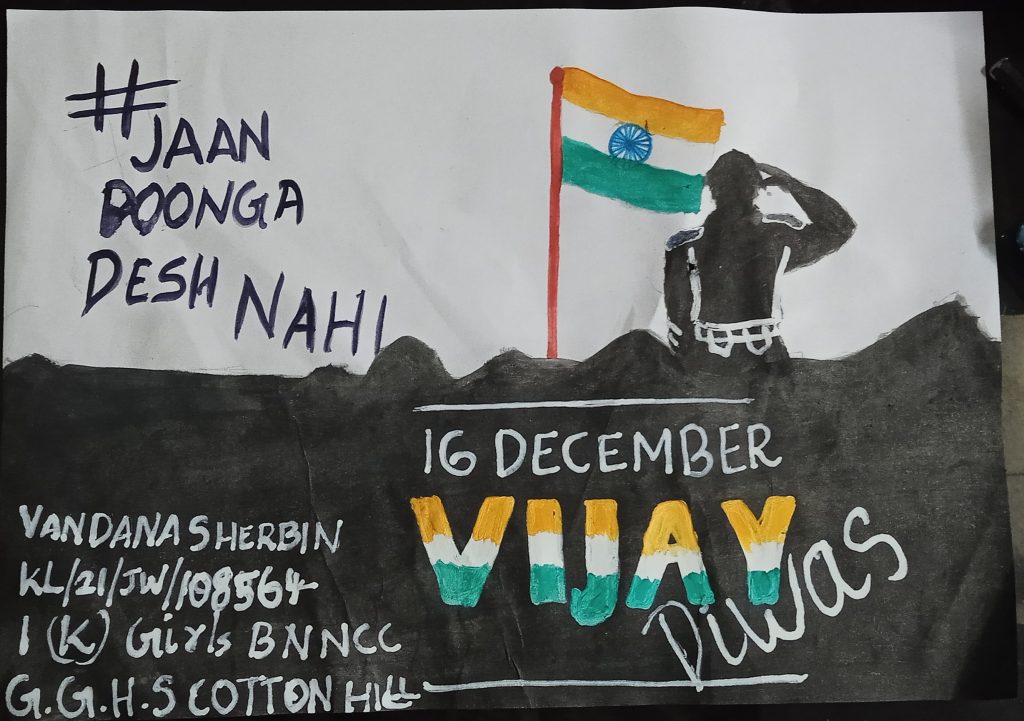 #JAAN
DOONGA
DESH NAHI
16 DECEMBER
VIJAY
Diwas
VANDANA SHERBIN
KL/21/JW/108564
1 (K) Girls BN NCC
G.G.H.S COTTON HILL